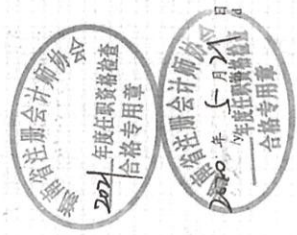 南省注册会计师协会
2021年度任职资格检查
合格专用章
南省注册会计师协会
2020年5月12日
年度任职资格检查
合格专用章